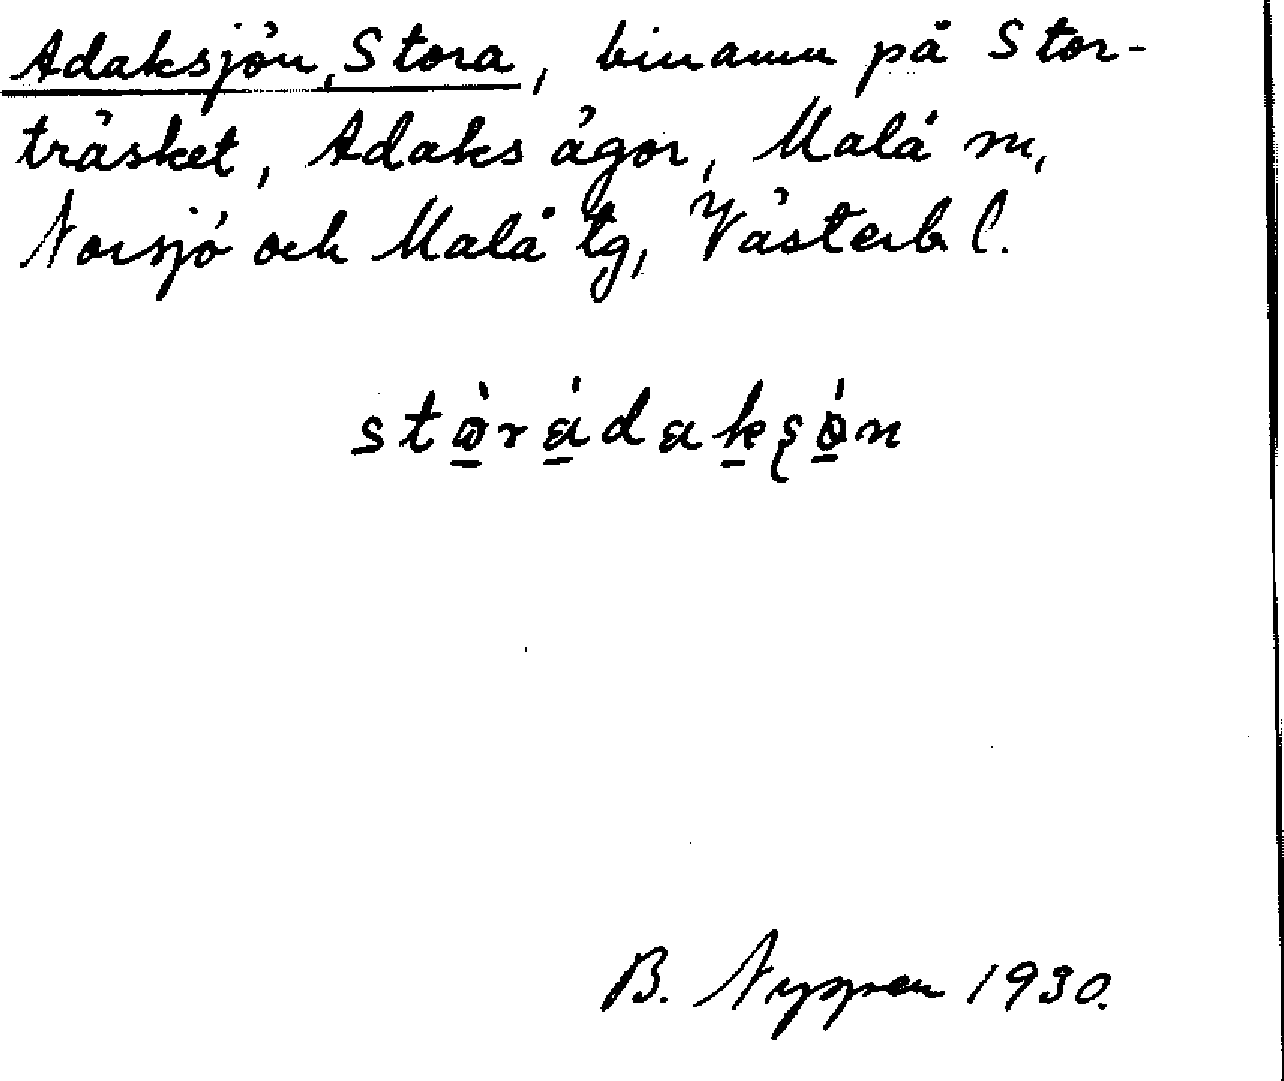 Adaksjön, Stora, binamn på Stor-
träsket, Adaks ägor, Malå sn,
Norsjö och Malå tg, Västerb l.
stòrádaksǿn
B. Nyppen 1930.